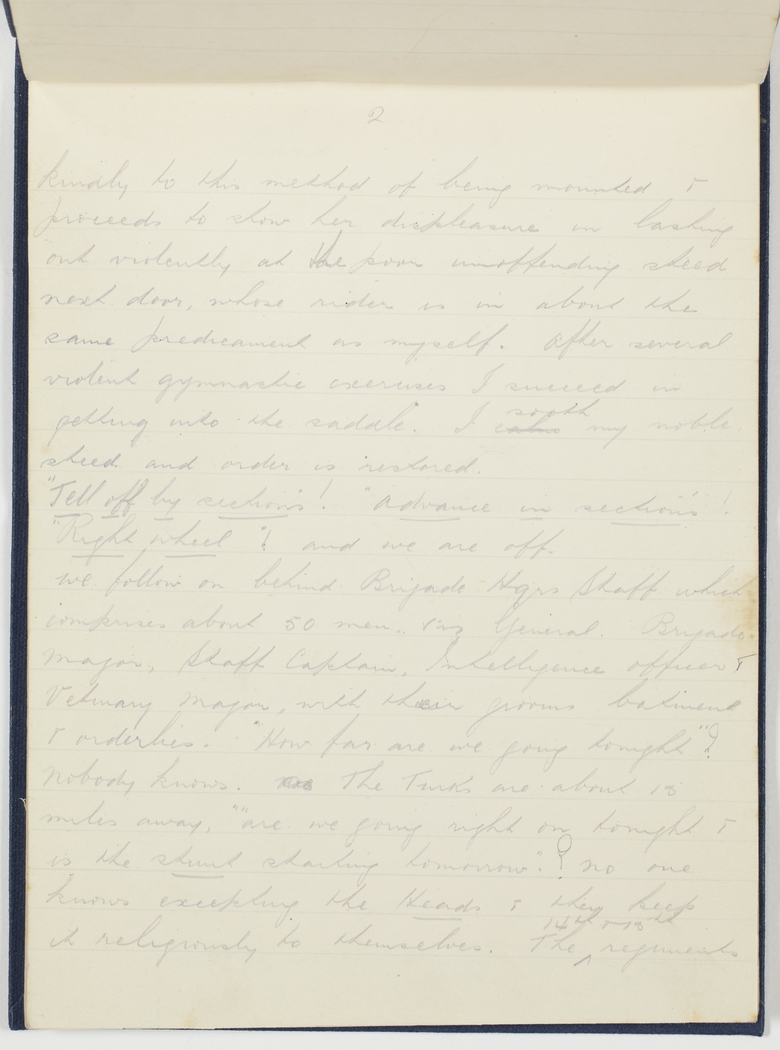 2
kindly to this method of being mounted &
proceeds to show her displeasure in lashing
out violently at the poor unoffending steed
next door, whose rider is in about the
same predicament as myself. After several
violent gymnastic exercises I succeed in
getting into the saddle. I calm sooth my noble
steed and order is restored.
"Tell off by sections"! "Advance in sections"!
"Right wheel"! and we are off.
We follow on behind Brigade Hqrs Staff which
comprises about 50 men. viz General. Brigade
Major, Staff Captain, Intelligence officer &
Vetinary Major, with their grooms batmens
& orderlies. "How far are we going tonight"?
Nobody knows. The Turks are about 15
miles away, ""are we going right on tonight &
is the stunt starting tomorrow"? no one
knows excepting the Heads & they keep
it religiously to themselves. The 14th & 15th regiments